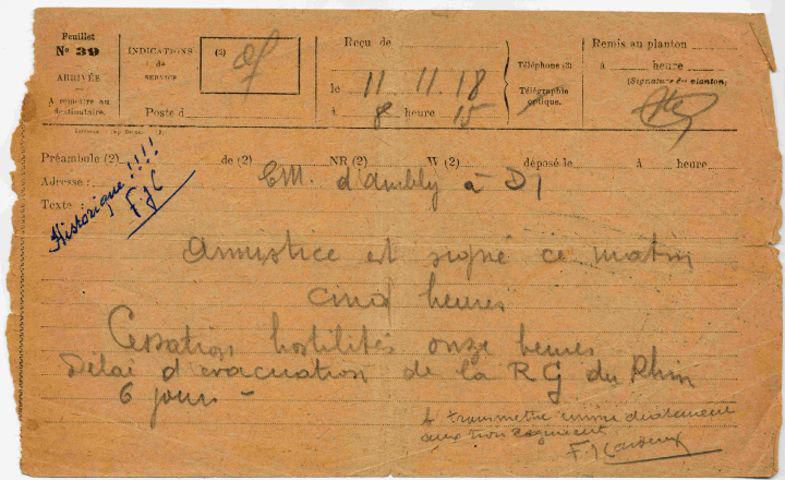 Feuillet
N° 39
ARRIVÉE
A remettre au
destinataire.
INDICATIONS
de
SERVICE
(2)
Poste d
Reçu de
le 11. 11. 18
à 8 heure 15
Téléphone (3)
Télégraphie
optique.
Remis au planton
à heure
(Signature du planton)
Préambule (2) de (2) NR (2) W (2) déposé le à heure
Adresse : d'Ambly à DI
Texte :
Historique !!!!
Armistice est signé ce matin
cinq heures
Cessation hostilités onze heures
Délai d'évacuation de la RG du Rhin
6 jours -
à transmettre immédiatement
aux trois régiments